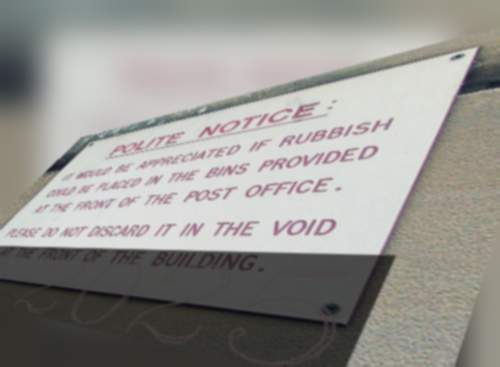 POLITE NOTICE :
IT WOULD BE APPRECIATED IF RUBBISH
COULD BE PLACED IN THE BINS PROVIDED
AT THE FRONT OF THE POST OFFICE.
PLEASE DO NOT DISCARD IT IN THE VOID
AT THE FRONT OF THE BUILDING.
2023